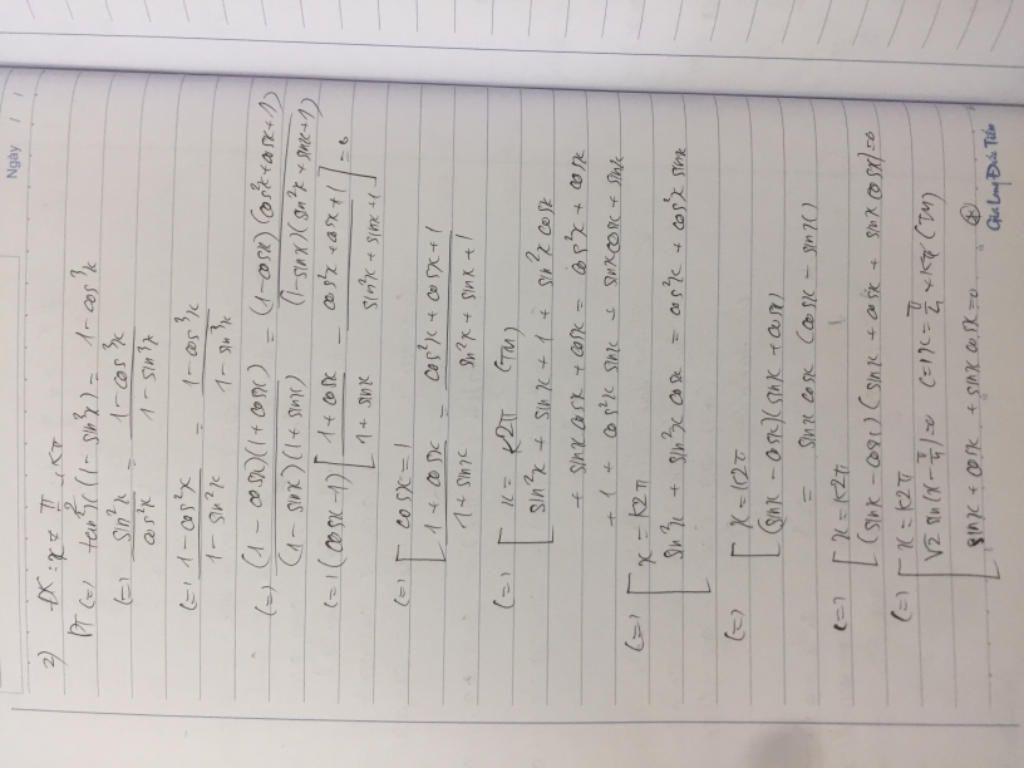 Ngày
2) ĐK: x ≠ π/2 + kπ
PT (=) tan²x(1 - sin³x) = 1 - cos³x
(=) sin²x/cos²x = (1 - cos³x)/(1 - sin³x)
(=) (1 - cos²x)/(1 - sin²x) = (1 - cos³x)/(1 - sin³x)
(=) (1 - cosx)(1 + cosx)/((1 - sinx)(1 + sinx)) = (1 - cosx)(cos²x + cosx + 1)/((1 - sinx)(sin²x + sinx + 1))
(=) (cosx - 1)[(1 + cosx)/(1 + sinx) - (cos²x + cosx + 1)/(sin²x + sinx + 1)] = 0
(=) [ cosx = 1
(1 + cosx)/(1 + sinx) = (cos²x + cosx + 1)/(sin²x + sinx + 1)
(=) [ x = k2π (TM)
sin²x + sinx + 1 + sin²x cosx
+ sinx cosx + cosx = cos²x + cosx
+ 1 + cos²x sinx + sinx cosx + sinx
(=) [ x = k2π
sin²x + sin²x cosx = cos²x + cos²x sinx
(=) [ x = k2π
(sinx - cosx)(sinx + cosx)
= sinx cosx (cosx - sinx)
(=) [ x = k2π
(sinx - cosx)(sinx + cosx + sinx cosx) = 0
(=) [ x = k2π
√2 sin(x - π/4) = 0 (=) x = π/4 + kπ (TM)
sinx + cosx + sinx cosx = 0 (*)